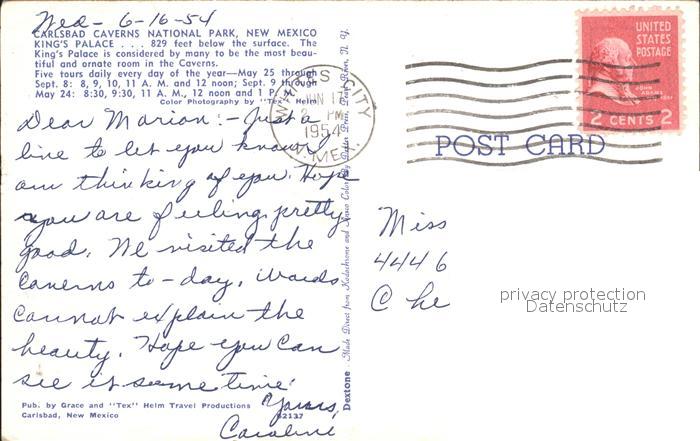 Wed - 6-16-54
CARLSBAD CAVERNS NATIONAL PARK, NEW MEXICO
KING'S PALACE . . . 829 feet below the surface. The
King's Palace is considered by many to be the most beau-
tiful and ornate room in the Caverns.
Five tours daily every day of the year—May 25 through
Sept. 8: 8, 9, 10, 11 A. M. and 12 noon; Sept. 9 through
May 24: 8:30, 9:30, 11 A. M., 12 noon and 1 P. M.
Color Photography by "Tex" Helm
Dear Marion: - Just a
line to let you know I
am thinking of you. Hope
you are feeling pretty
good. We visited the
caverns to-day. Words
cannot explain the
beauty. Hope you can
see it sometime.
Yours,
Caroline
Pub. by Grace and "Tex" Helm Travel Productions
Carlsbad, New Mexico
62137
Dextone
Made Direct from Kodachrome and Ansco Color by Dexter Press, Pearl River, N. Y.
WHITES CITY
JUN 17
PM
1954
N. MEX.
UNITED
STATES
POSTAGE
JOHN
ADAMS
2 CENTS 2
POST CARD
Miss
4446
Che
privacy protection
Datenschutz